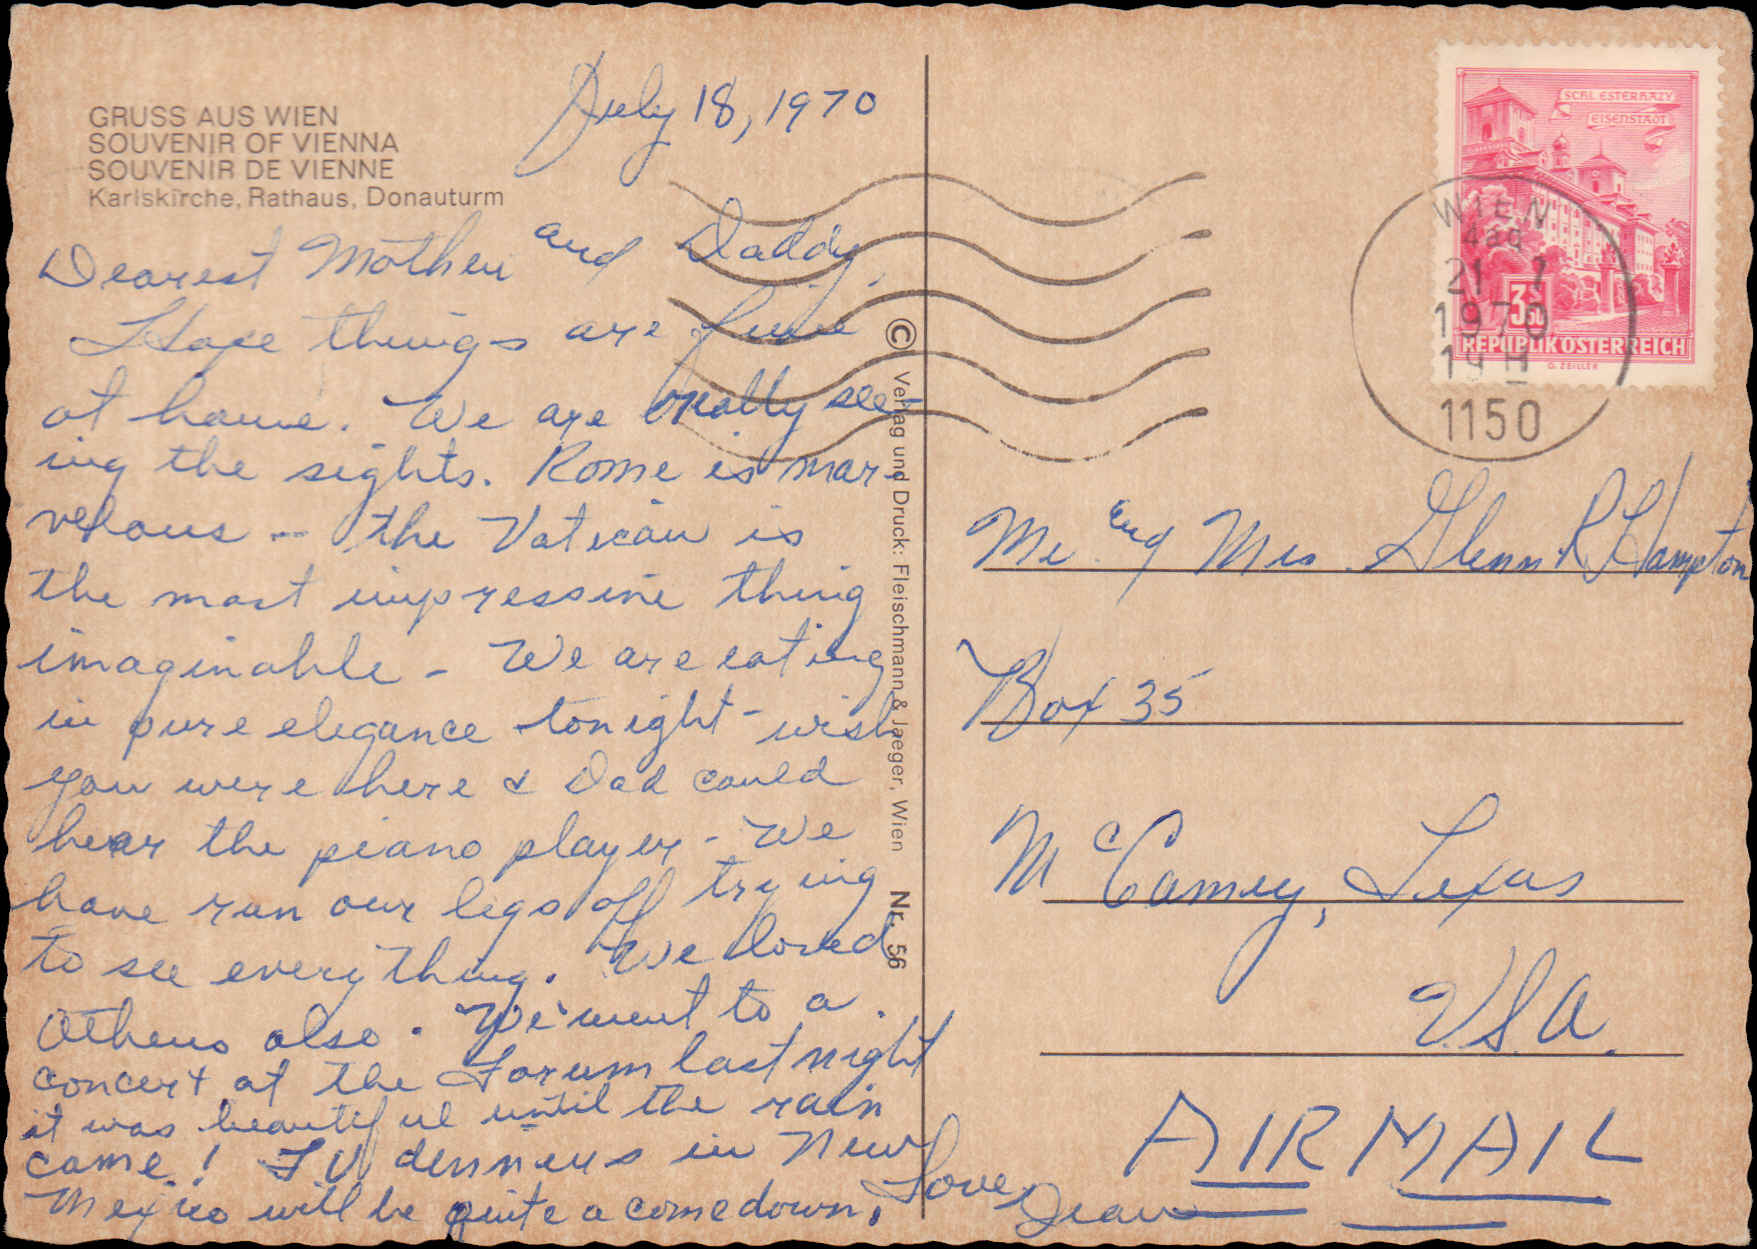 GRUSS AUS WIEN
SOUVENIR OF VIENNA
SOUVENIR DE VIENNE
Karlskirche, Rathaus, Donauturm
July 18, 1970
Dearest Mother and Daddy,
Hope things are fine
at home. We are really see-
ing the sights. Rome is mar-
velous -- the Vatican is
the most impressive thing
imaginable - We are eating
in pure elegance tonight - wish
you were here & Dad could
hear the piano player - We
have run our legs off trying
to see everything. We loved
Athens also. We went to a
concert at the Forum last night
it was beautiful until the rain
came! TV dinners in New
Mexico will be quite a comedown.
Love,
Jean
© Verlag und Druck: Fleischmann & Jaeger, Wien Nr. 56
SCHL. ESTERHAZY
EISENSTADT
3 S 50
REPUBLIK ÖSTERREICH
G. ZEILLER
WIEN
21 7
1970
19 H
1150
Mr and Mrs. Glenn R Hampton
Box 35
McCamey, Texas
U.S.A.
AIR MAIL